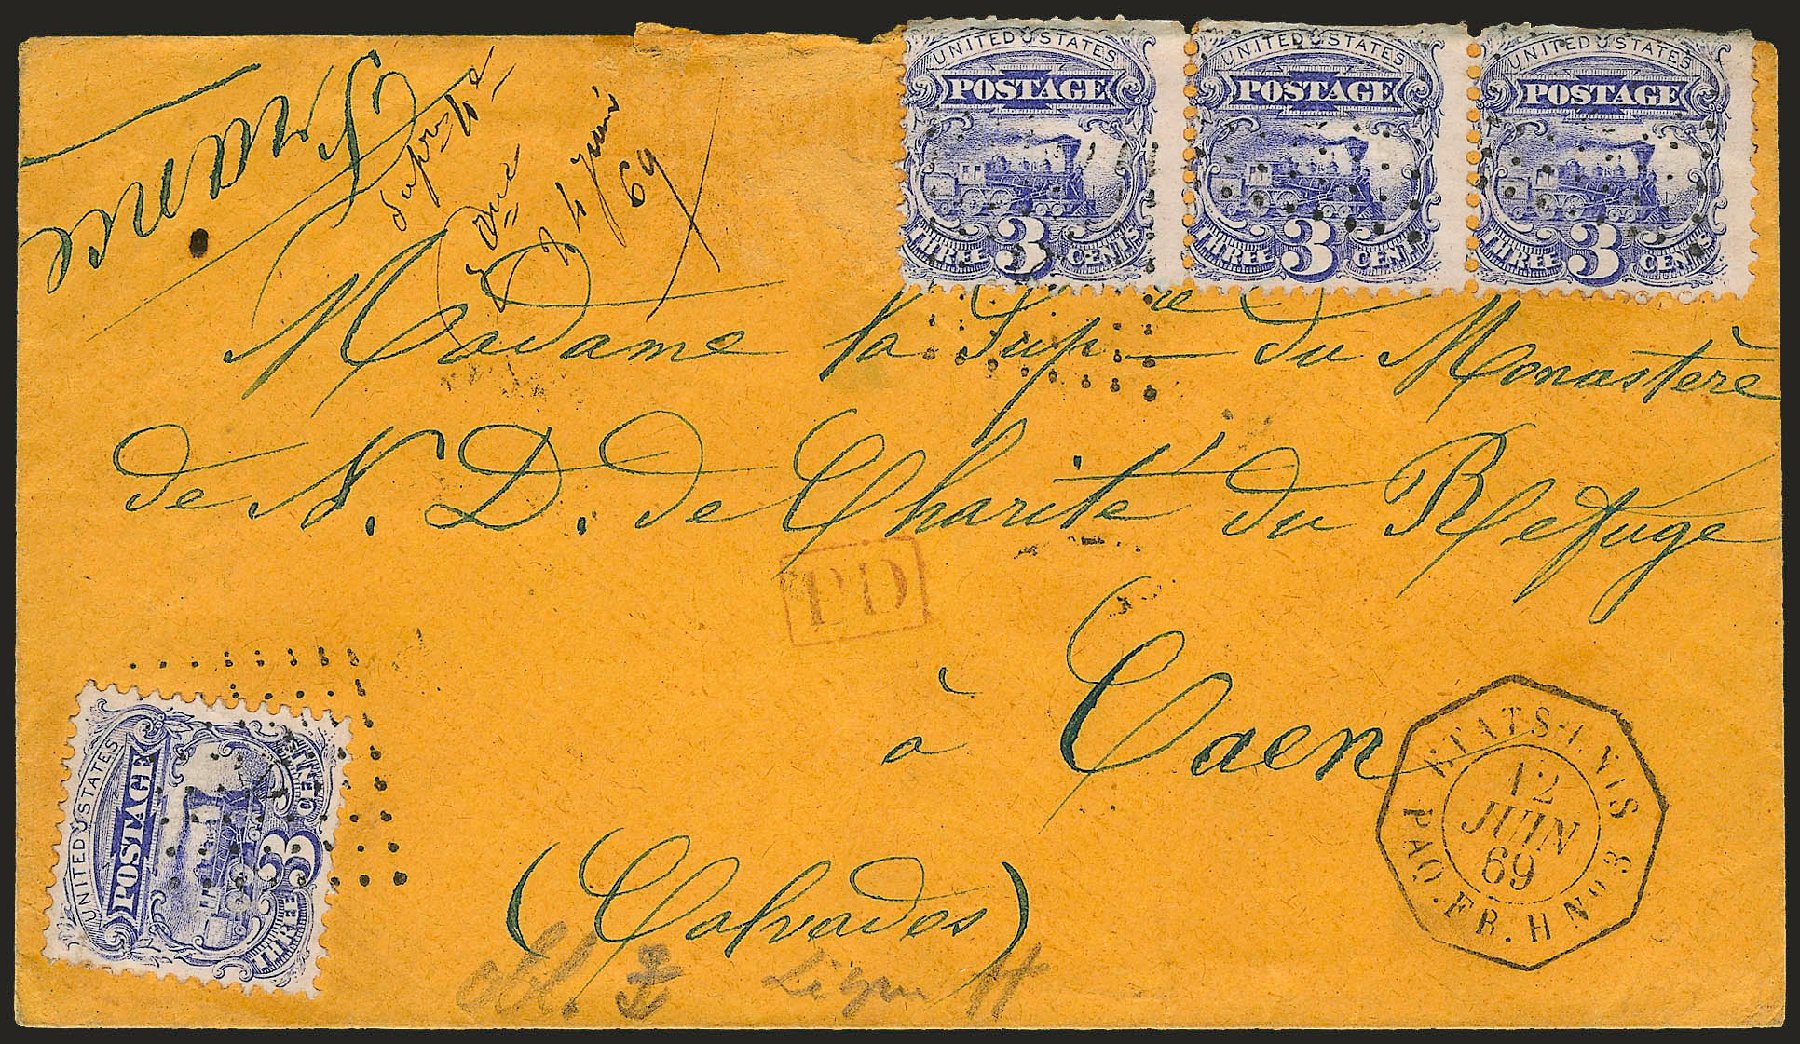 France
24 Juin
69
UNITED STATES UNITED STATES UNITED STATES
POSTAGE POSTAGE POSTAGE
THREE 3 CENTS THREE 3 CENTS THREE 3 CENTS
Madame la Supre du Monastère
de N. D. de Charité du Refuge
PD
à Caen
(Calvados)
ETATS-UNIS
12
JUIN
69
PAQ. FR. H No 3
UNITED STATES
POSTAGE
THREE 3 CENTS
Ligne H